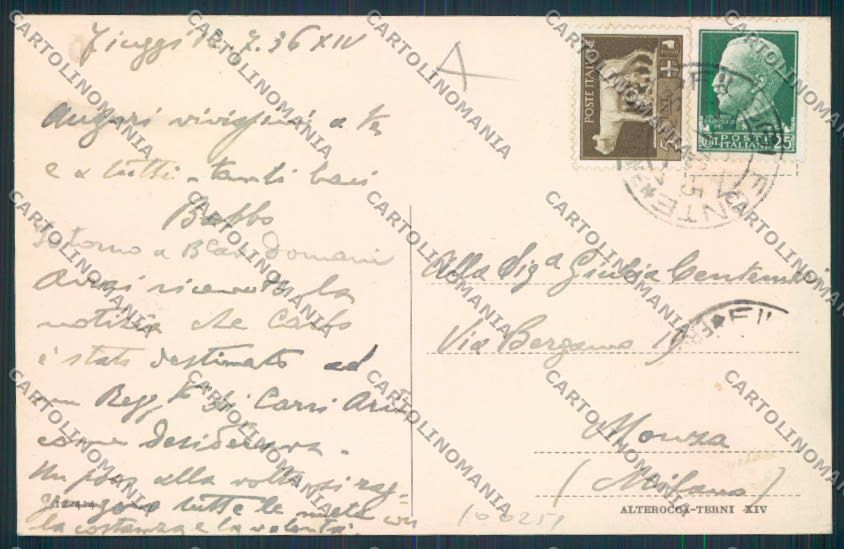 Fiuggi 12.7.36 XIV
A
Auguri vivissimi a te
e a tutti - tanti baci
Babbo
Ritorno a domani
Avrai ricevuto la
notizia che Carlo
è stato destinato ad
un Regg.to di Carri Armti
come desiderava.
Un poco alla volta si rag-
giungono tutte le mete con
la costanza e la volontà.
POSTE ITALIANE
5
CENT.
POSTE
ITALIANE
25
FONTE
Alla Sig.a Giulia Centemeri
Via Bergamo 19
Monza
(Milano)
ALTEROCCA-TERNI XIV
100251
CARTOLINOMANIA